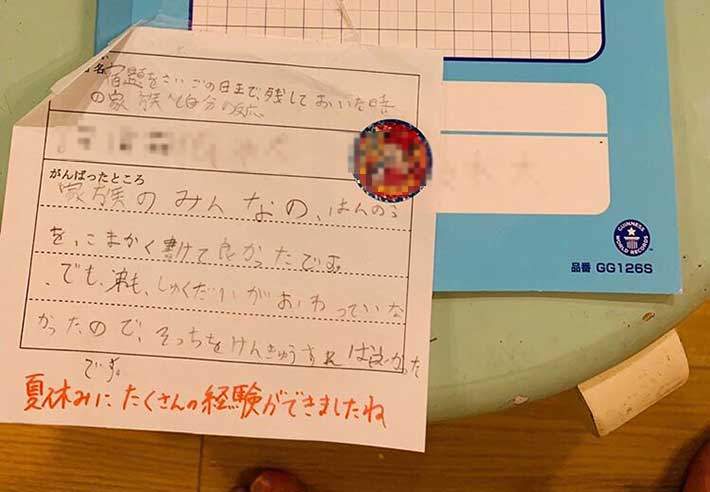 宿題をさいごの日まで、残しておいた時
の家族や自分の反応
がんばったところ
家族のみんなの、はんのう
を、こまかく書けて良かったです。
、でも、弟も、しゅくだいがおわっていな
かったので、そっちをけんきゅうすれば良かった
です。
夏休みにたくさんの経験ができましたね
GUINNESS
WORLD RECORDS
品番 GG126S